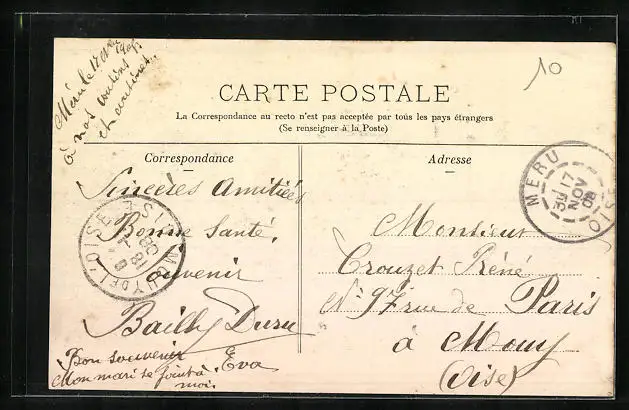 Méru le 17 9bre 1908
à nos cousins
et cousines
10
CARTE POSTALE
La Correspondance au recto n'est pas acceptée par tous les pays étrangers
(Se renseigner à la Poste)
Correspondance
Sincères Amitiées
Bonne Santé.
Souvenir
Bailly Duru
Bon souvenir Eva
Mon mari se joint à
moi.
Adresse
Monsieur
Crouzet Réné
N° 97 rue de Paris
à Mouy
(Oise)
MERU
17
NOV
08
OISE
MOUY DE L'OISE